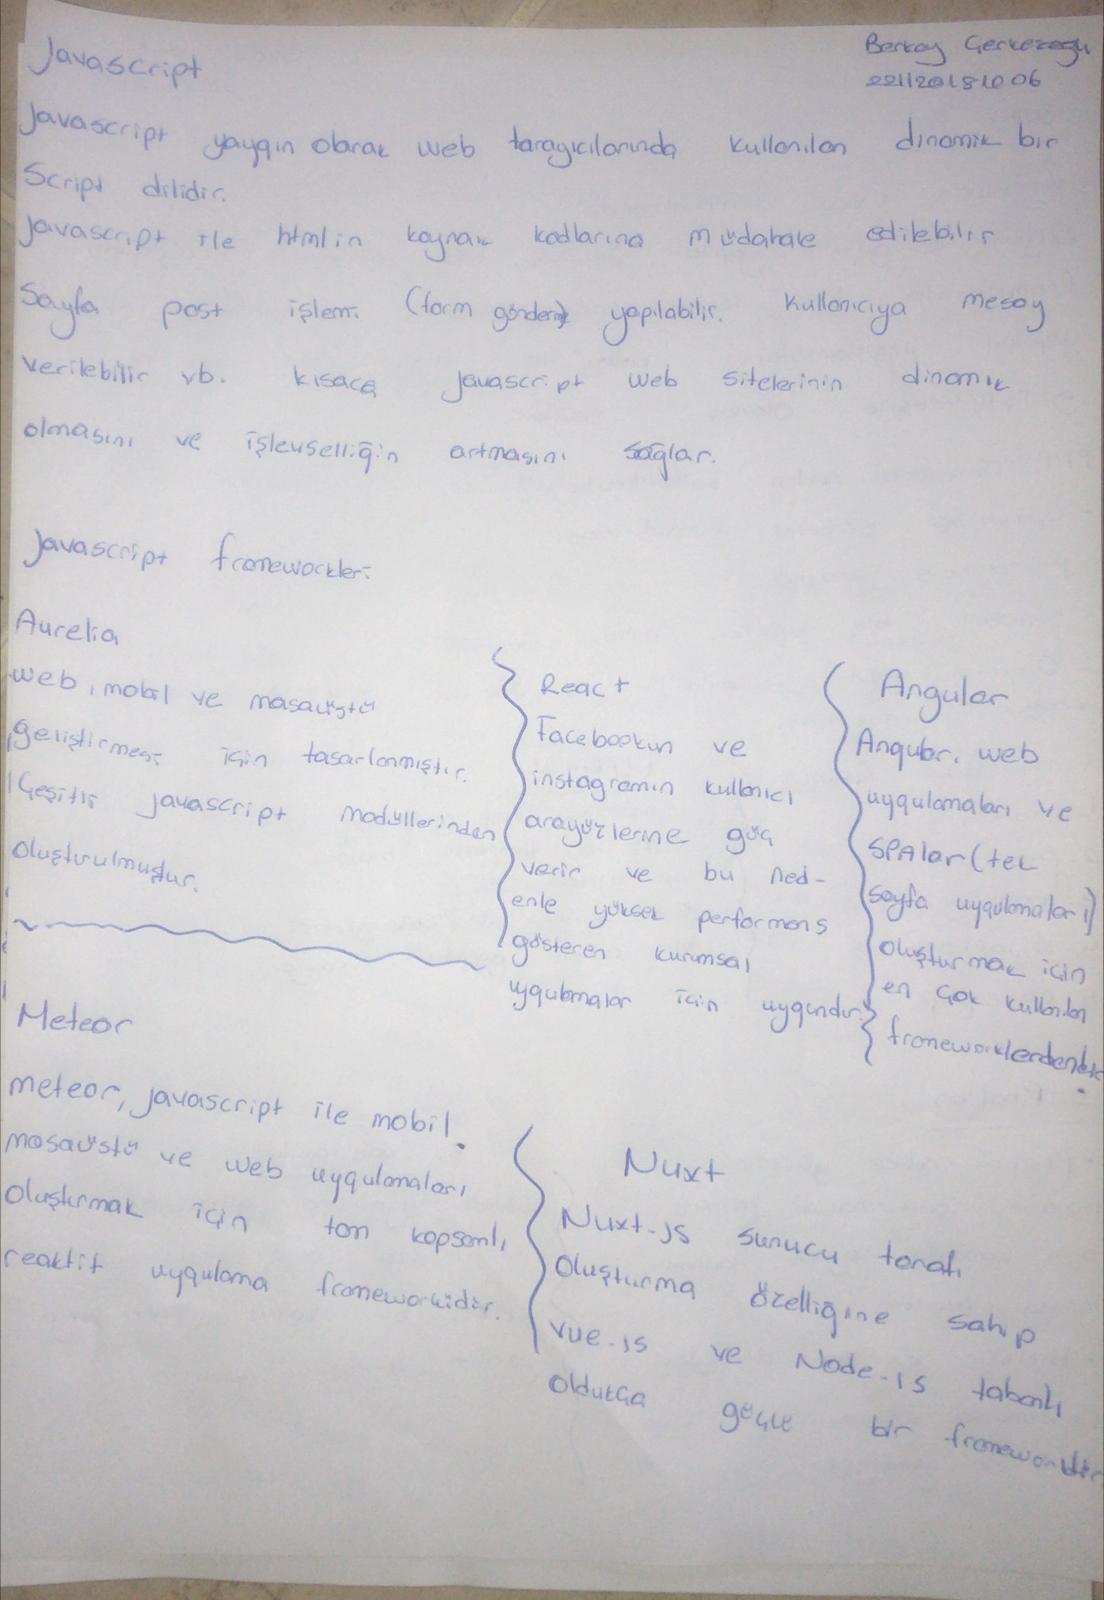 Javascript
Berkay Çerkezoğlu
Javascript yaygın olarak web tarayıcılarında kullanılan dinamik bir
Script dilidir.
Javascript ile htmlin kaynak kodlarına müdahale edilebilir
Sayfa post işlemi (form gönderme) yapılabilir. Kullanıcıya mesaj
verilebilir vb. kısaca javascript web sitelerinin dinamik
olmasını ve işlevselliğin artmasını sağlar.
Javascript frameworkleri
Aurelia
web, mobil ve masaüstü
geliştirmesi için tasarlanmıştır.
Çeşitli javascript modüllerinden
oluşturulmuştur.
React
Facebookun ve
instagramın kullanıcı
arayüzlerine güç
verir ve bu ned-
enle yüksek performans
gösteren kurumsal
uygulamalar için uygundur.
Angular
Angular, web
uygulamaları ve
SPAlar (tek
sayfa uygulamaları)
oluşturmak için
en çok kullanılan
frameworklerdendir.
Meteor
meteor, javascript ile mobil,
masaüstü ve web uygulamaları
oluşturmak için tam kapsamlı
reaktif uygulama frameworkidir.
Nuxt
Nuxt-js sunucu tarafı
oluşturma özelliğine sahip
vue-js ve Node-js tabanlı
oldukça güçlü bir frameworktür